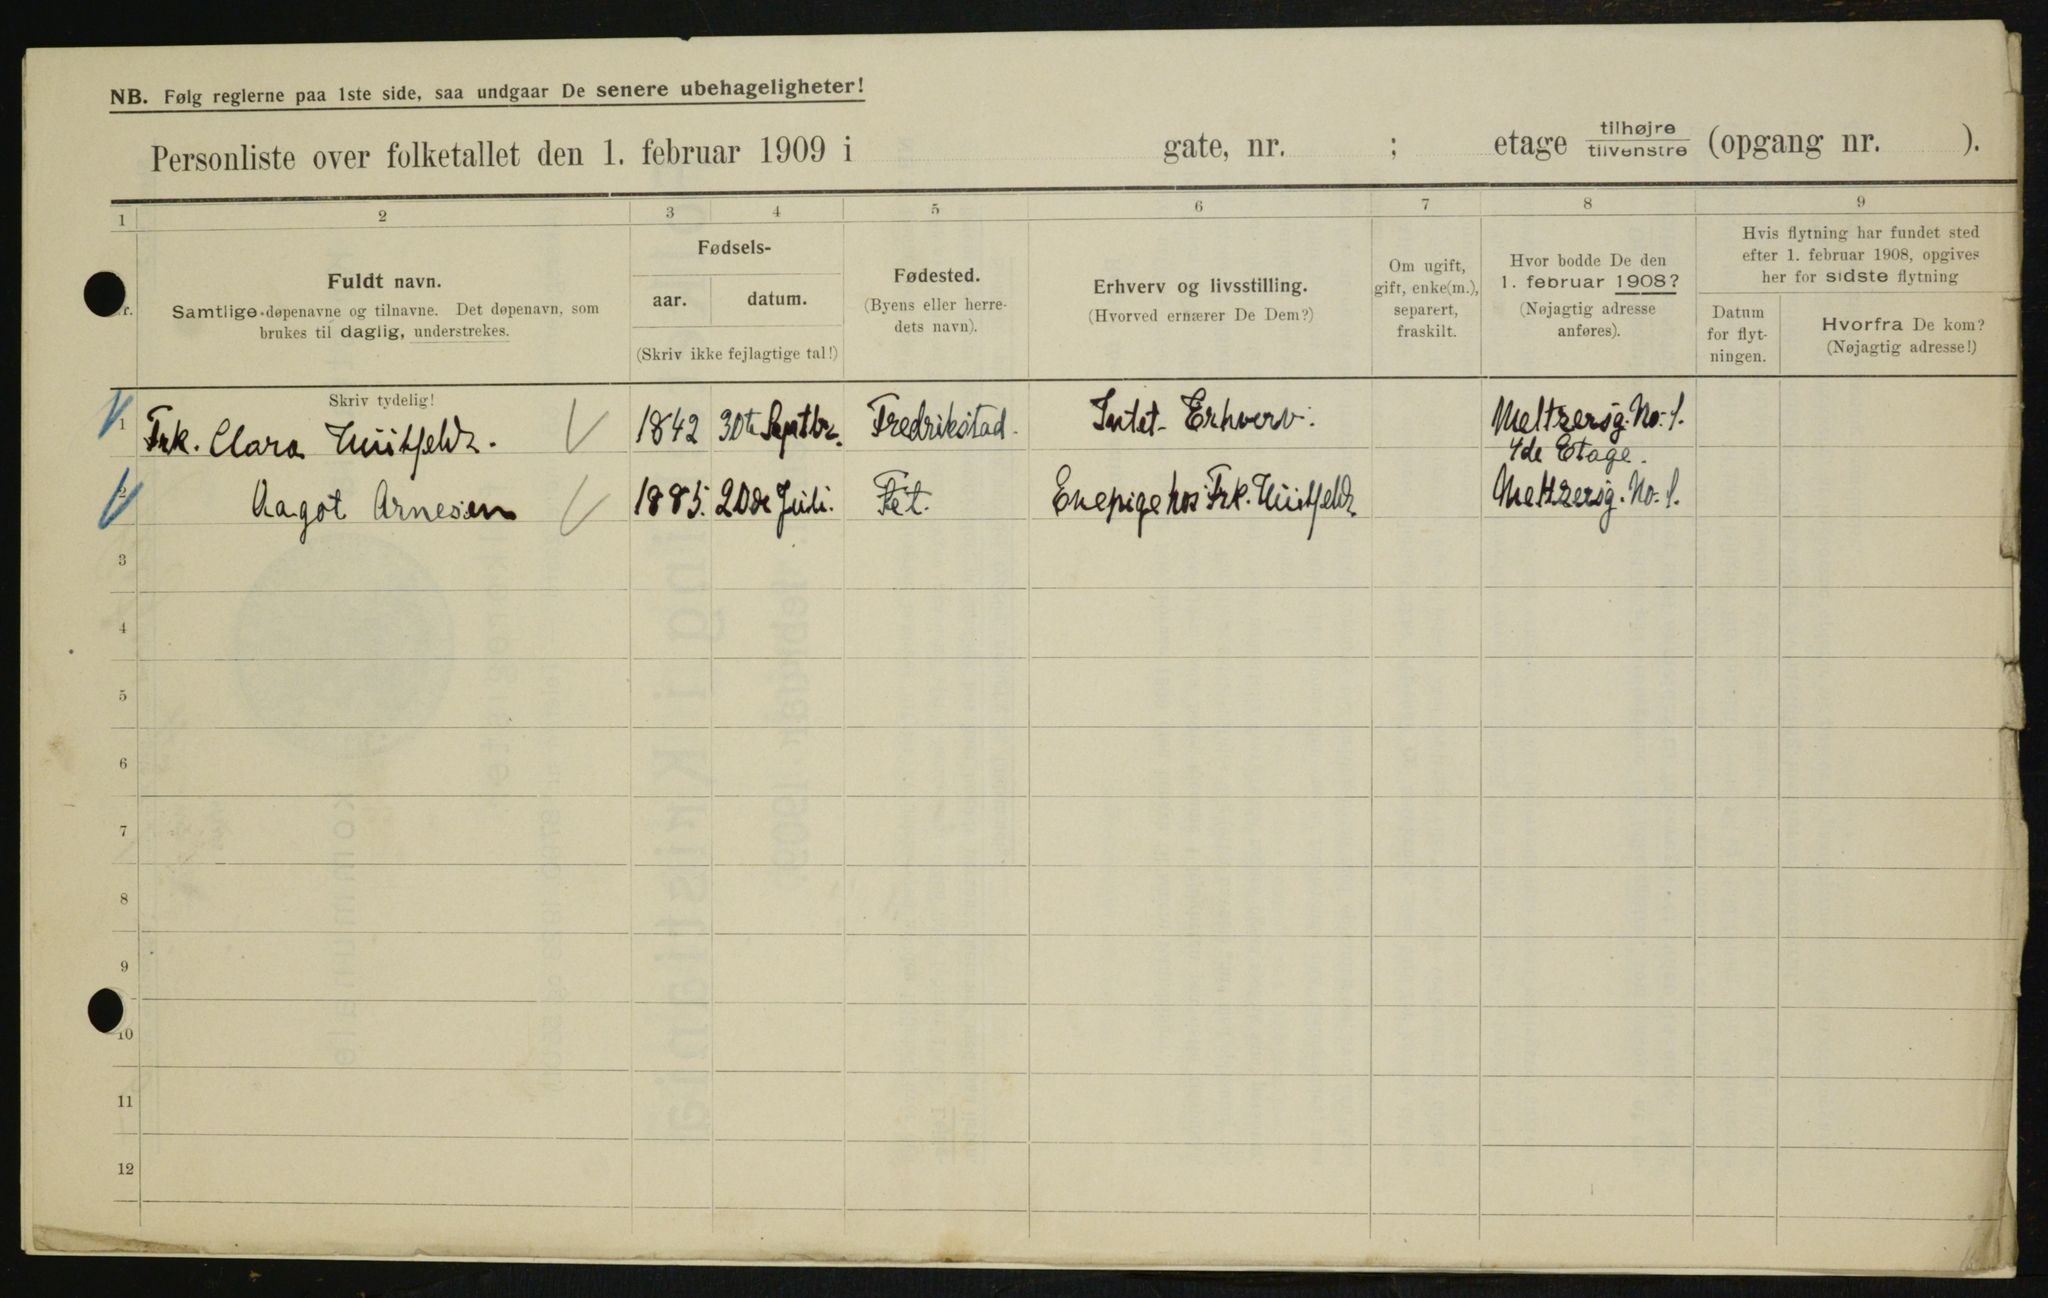 NB. Følg reglerne paa 1ste side, saa undgaar De senere ubehageligheter!
Personliste over folketallet den 1. februar 1909 i gate, nr. ; etage tilhøjre tilvenstre (opgang nr. ).
1 2 3 4 5 6 7 8 9
Nr.
Fuldt navn.
Samtlige døpenavne og tilnavne. Det døpenavn, som
brukes til daglig, understrekes.
Fødsels-
aar. datum.
(Skriv ikke fejlagtige tal!)
Fødested.
(Byens eller herre-
dets navn).
Erhverv og livsstilling.
(Hvorved ernærer De Dem?)
Om ugift,
gift, enke(m.),
separert,
fraskilt.
Hvor bodde De den
1. februar 1908?
(Nøjagtig adresse
anføres).
Hvis flytning har fundet sted
efter 1. februar 1908, opgives
her for sidste flytning
Datum
for flyt-
ningen.
Hvorfra De kom?
(Nøjagtig adresse!)
Skriv tydelig!
1 Frk. Clara Huitfeldt. 1842 30te Septbr. Fredrikstad. Intet Erhverv. Meltzersg. No. 1.
4de Etage.
2 Aagot Arnesen 1885. 20de Juli. Fet. Enepige hos Frk. Huitfeldt Meltzersg. No. 1.
3
4
5
6
7
8
9
10
11
12